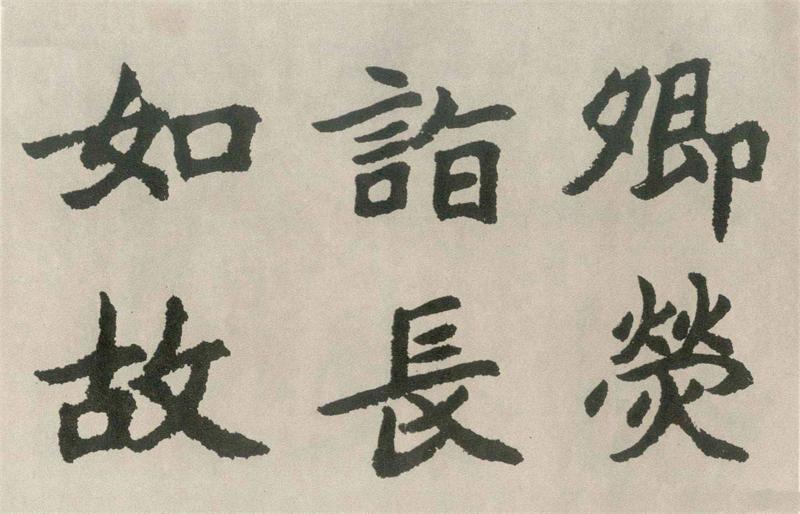 卿熒
詣長
如故